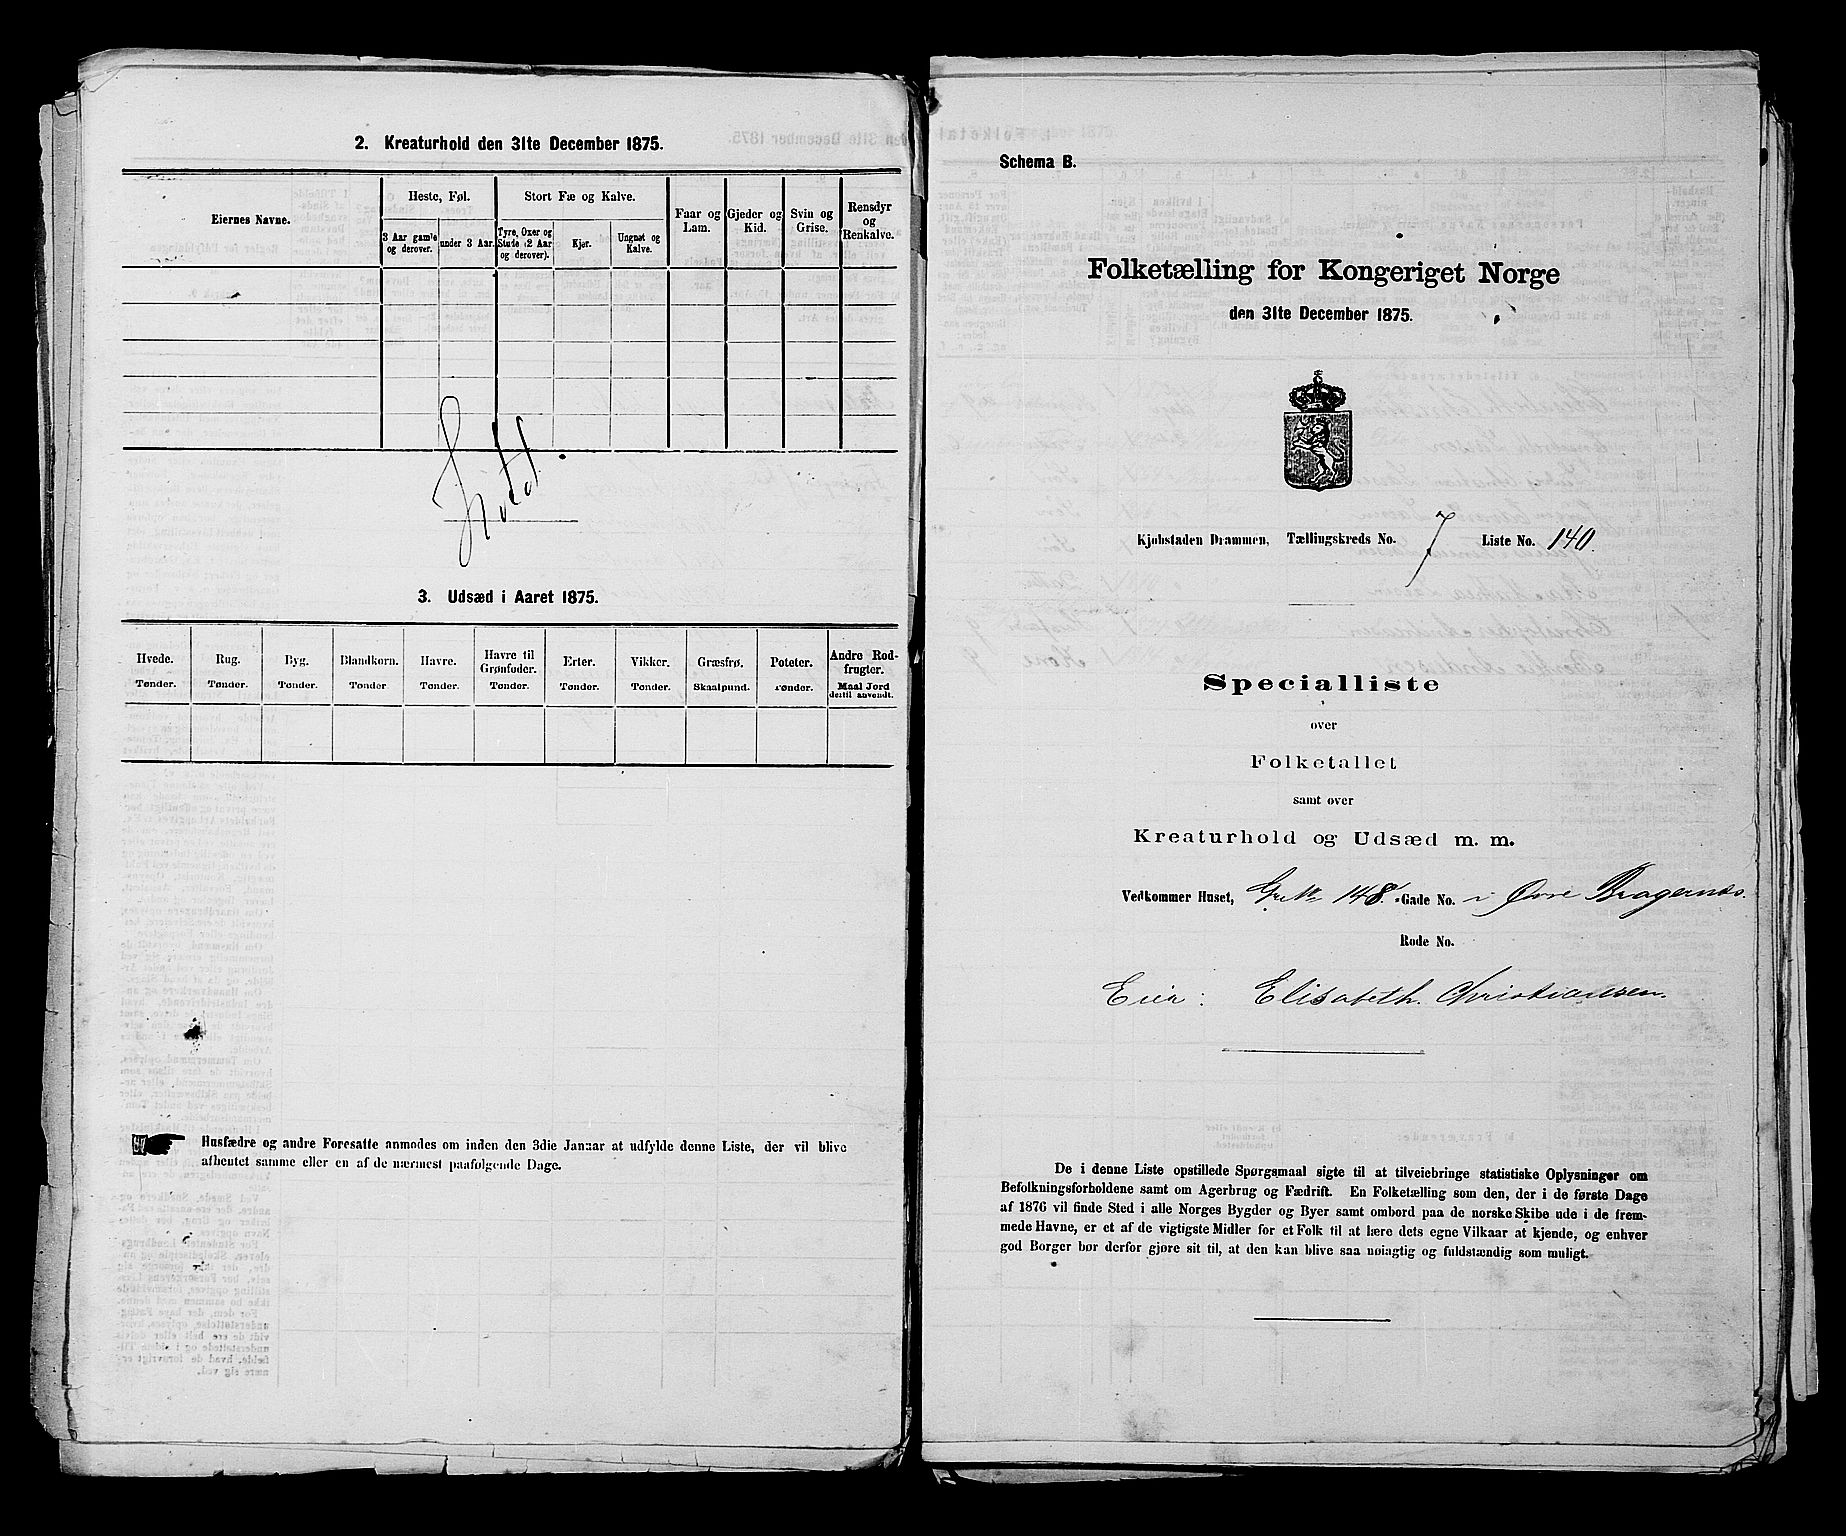 2. Kreaturhold den 31te December 1875.
Eiernes Navne.
Heste, Føl.
3 Aar gamle og derover.
under 3 Aar.
Stort Fæ og Kalve.
Tyre, Oxer og Stude (2 Aar og derover).
Kjør.
Ungnøt og Kalve.
Faar og Lam.
Gjeder og Kid.
Svin og Grise.
Rensdyr og Renkalve.
3. Udsæd i Aaret 1875.
Hvede. Tønder.
Rug. Tønder.
Byg. Tønder.
Blandkorn. Tønder
Havre. Tønder.
Havre til Grønfoder. Tønder.
Erter. Tønder.
Vikker. Tønder.
Græsfrø. Skaalpund.
Poteter. Tønder.
Andre Rodfrugter. Maal Jord dertil anvendt.
Husfædre og andre Foresatte anmodes om inden den 3die Januar at udfylde denne Liste, der vil blive
afhentet samme eller en af de nærmest paafølgende Dage.
Schema B.
Folketælling for Kongeriget Norge
den 31te December 1875.
Kjøbstaden Drammen, Tællingskreds No. 7 Liste No. 140.
Specialliste
over
Folketallet
samt over
Kreaturhold og Udsæd m. m.
Vedkommer Huset, 148. Gade No. i Øvre Bragernæs.
Rode No.
Eier: Elisabeth Christiansen.
De i denne Liste opstillede Spørgsmaal sigte til at tilveiebringe statistiske Oplysninger om
Befolkningsforholdene samt om Agerbrug og Fædrift. En Folketælling som den, der i de første Dage
af 1876 vil finde Sted i alle Norges Bygder og Byer samt ombord paa de norske Skibe ude i de frem-
mede Havne, er et af de vigtigste Midler for et Folk til at lære dets egne Vilkaar at kjende, og enhver
god Borger bør derfor gjøre sit til, at den kan blive saa nøiagtig og fuldstændig som muligt.